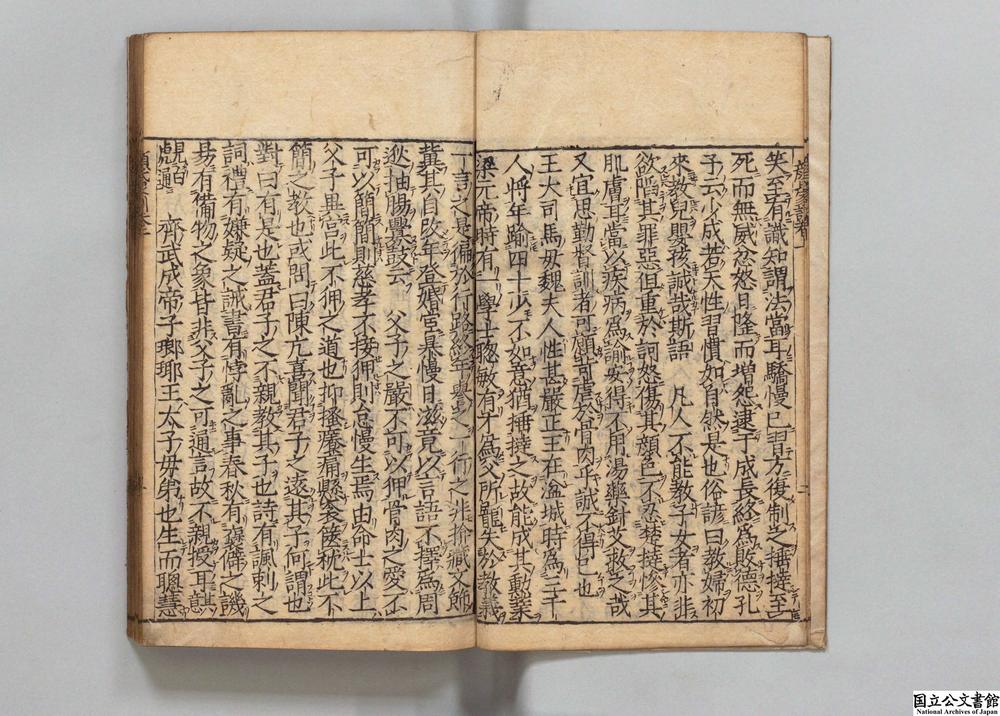 笑至有識知謂法當耳驕慢已習方復制之捶撻至
死而無威忿怒日隆而增怨逮于成長終為敗德孔
子云少成若天性習慣如自然是也俗諺曰教婦初
來教兒嬰孩誠哉斯語 凡人不能教子女者亦非
欲陷其罪惡但重於訶怒傷其顔色不忍楚撻慘其
肌膚耳當以疾病為諭安得不用湯藥針艾救之哉
又宜思勤督訓者可願苛虐於骨肉乎誠不得已也
王大司馬母魏夫人性甚嚴正王在湓城時為三千
人將年踰四十少不如意猶捶撻之故能成其勳業
梁元帝時有一學士聰敏有才為父所寵失於教義
一言之是徧於行路終年譽之一行之非揜藏文飾
冀其自改年登婚宦暴慢日滋竟以言語不擇為周
逖抽腸釁鼓云 父子之嚴不可以狎骨肉之愛不
可以簡簡則慈孝不接狎則怠慢生焉由命士以上
父子異宮此不狎之道也抑搔癢痛懸衾篋枕此不
簡之教也或問曰陳亢喜聞君子之遠其子何謂也
對曰有是也蓋君子之不親教其子也詩有諷刺之
詞禮有嫌疑之誡書有悖亂之事春秋有衺僻之譏
易有備物之象皆非父子之可通言故不親授耳其意
見白虎通 齊武成帝子瑯琊王太子母弟也生而聰慧
国立公文書館
National Archives of Japan